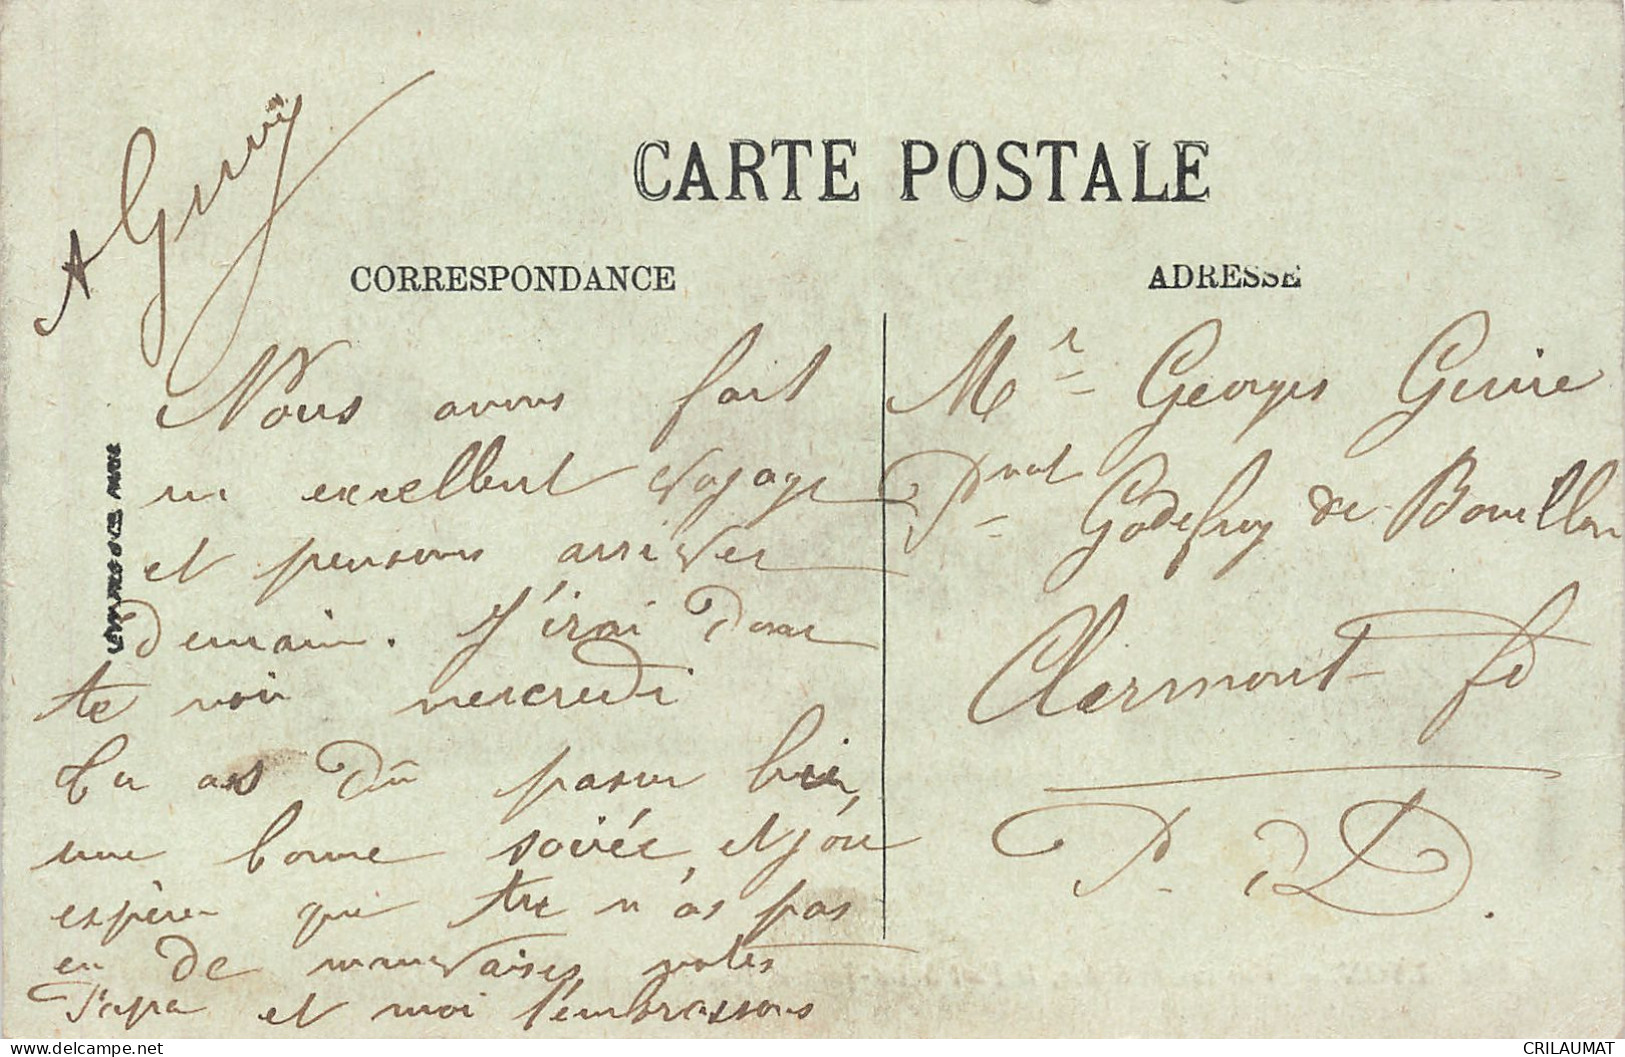 CARTE POSTALE
CORRESPONDANCE
ADRESSE
A
Nous avons fait
un excellent voyage
et pensons arriver
Demain. J'irai Donc
te voir mercredi
Tu as Dû passer hier
une bonne soirée, et j'ose
espérer que tu n'as pas
eu de mauvaises notes
Papa et moi t'embrassons
Mr Georges
Pnat Godefroy de Bouillon
Clermont-fd
P. D.
delcampe.net
CRILAUMAT